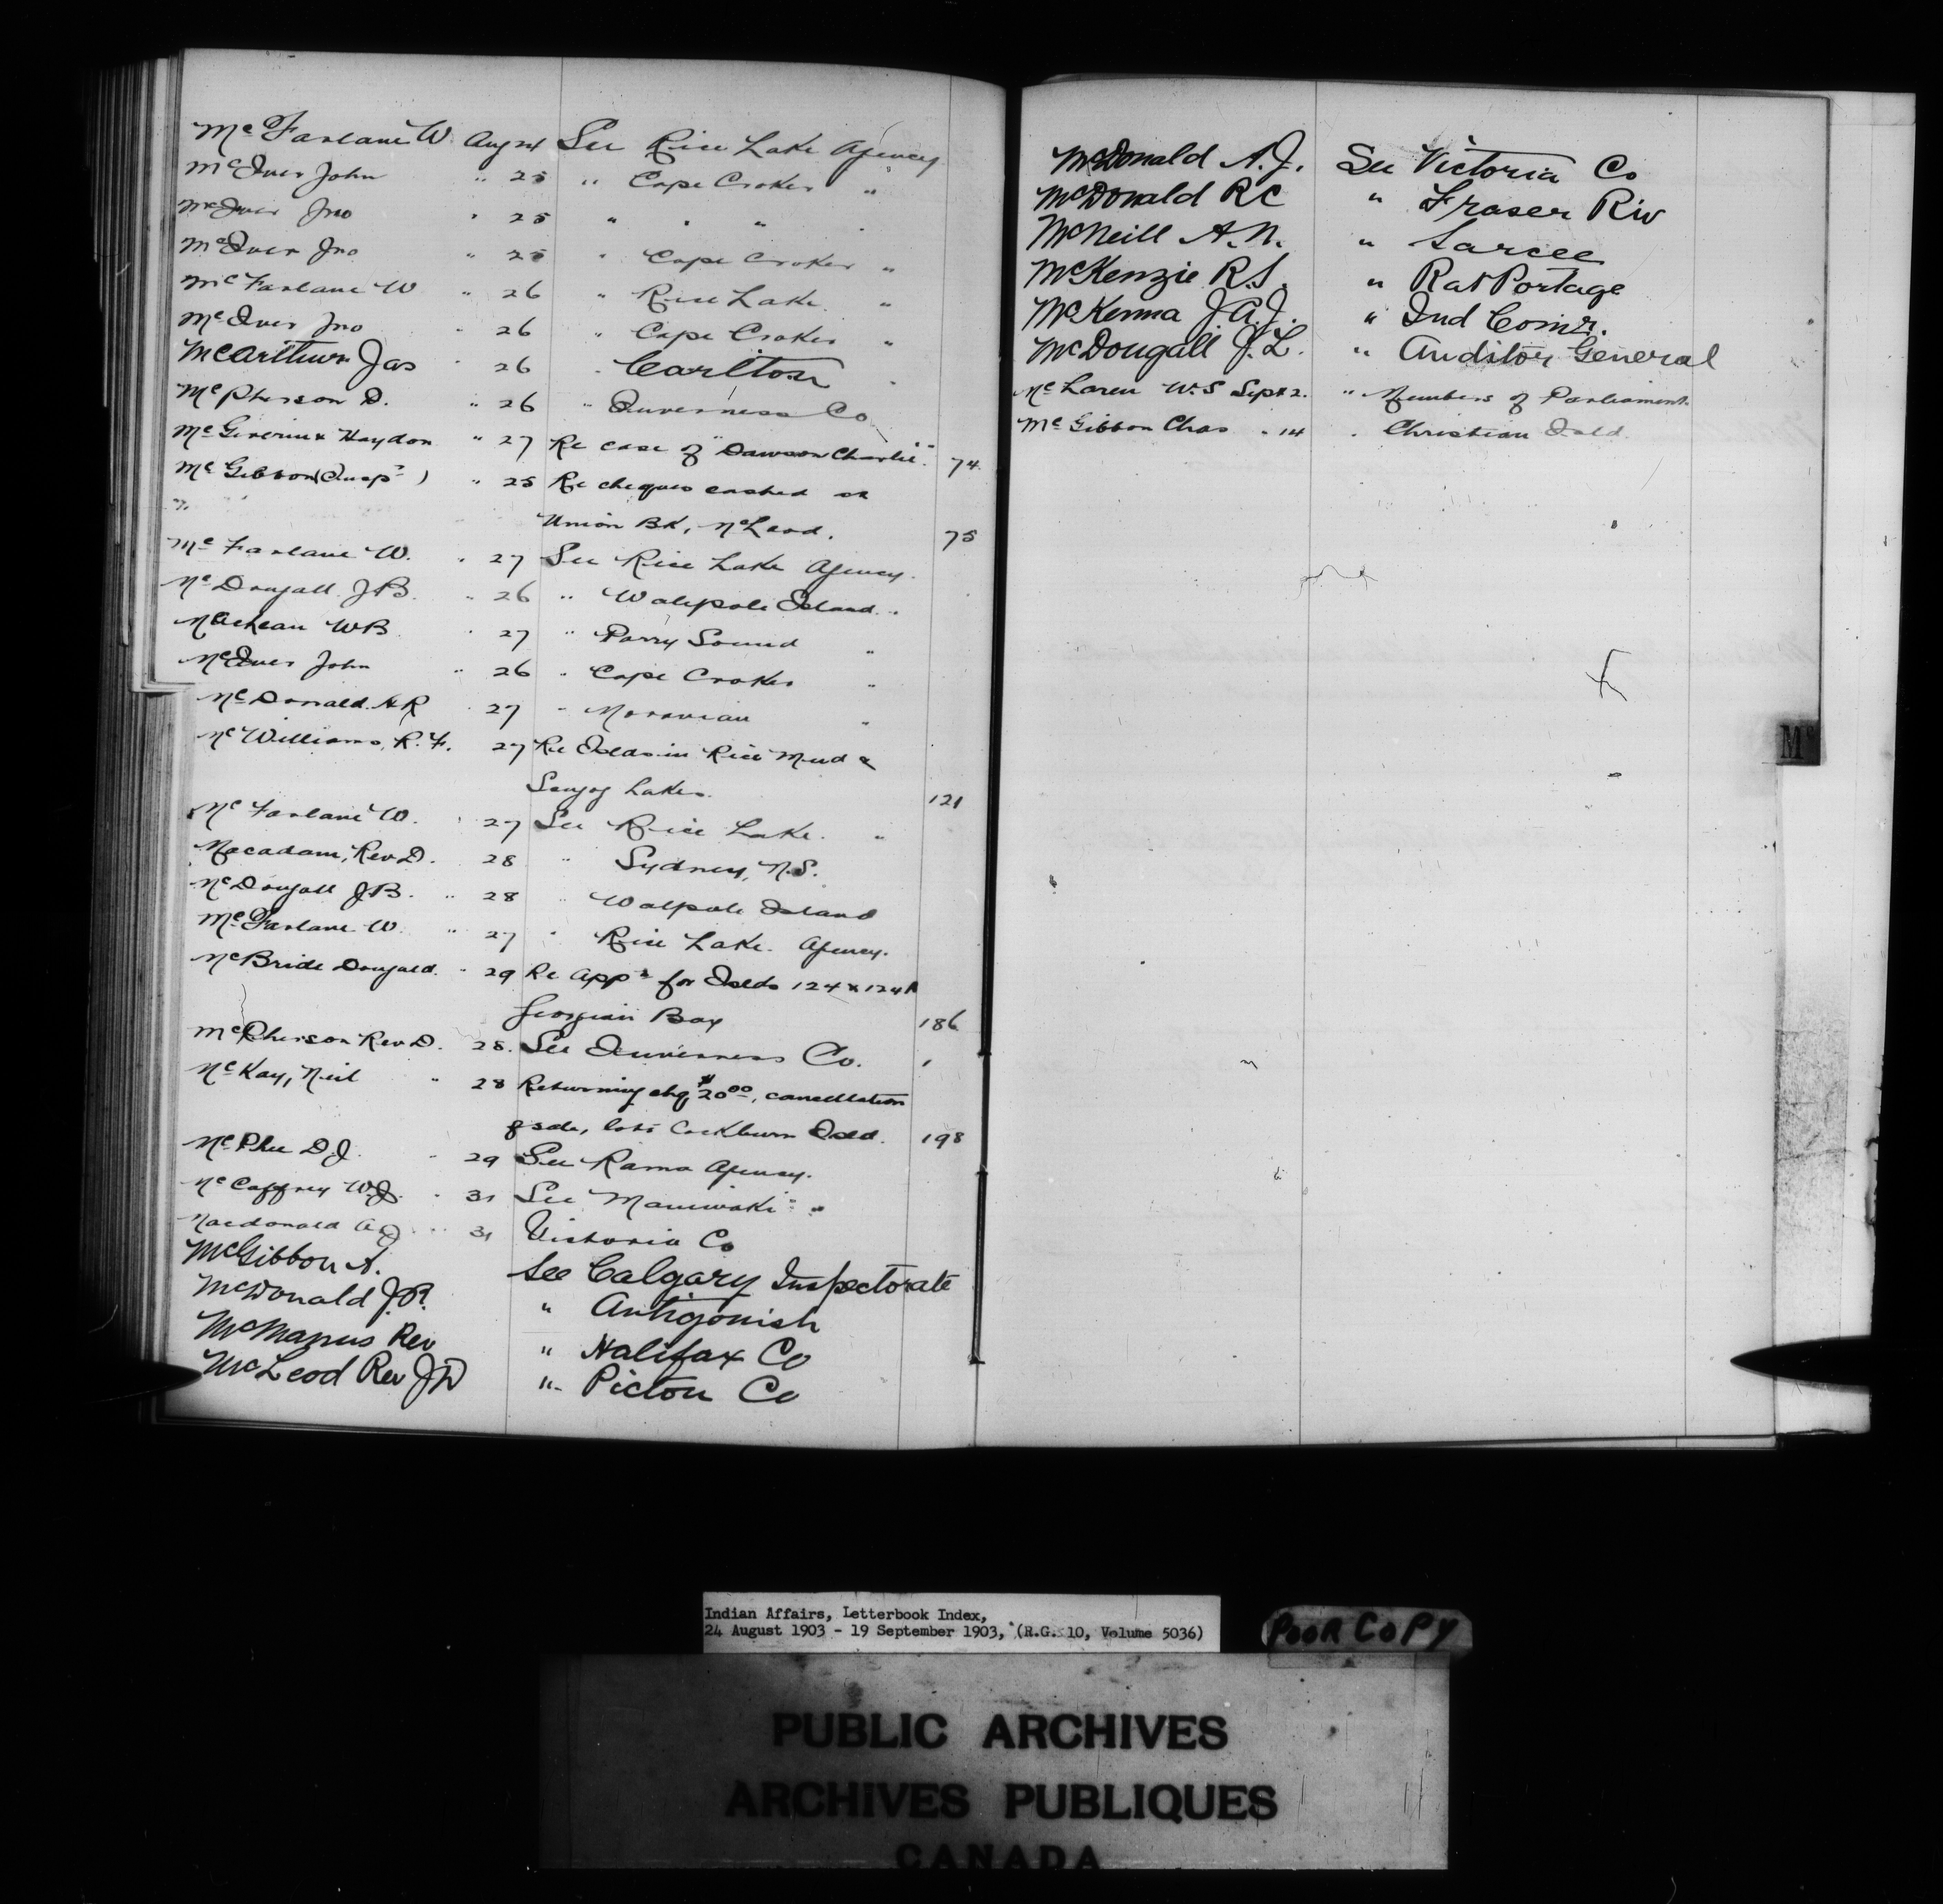 McFarlane W. Aug 24 See Rice Lake Agency
McIver John " 25 " Cape Croker "
McIver Jno " 25 " " "
McIver Jno " 25 " Cape Croker "
McFarlane W " 26 " Rice Lake "
McIver Jno " 26 " Cape Croker "
McArthur Jas " 26 " Carlton "
McPherson D. " 26 " Inverness Co
McGiverin & Haydon " 27 Re case of "Dawson Charlie". 74
McGibbon (Insp.) " 25 Re cheques cashed at
Union Bk, McLeod. 75
McFarlane W. " 27 See Rice Lake Agency.
McDougall J.B. " 26 " Walpole Island "
McLean W B " 27 " Parry Sound "
McIver John " 26 " Cape Croker "
McDonald. A R " 27 " Moravian "
McWilliams, R. F. 27 Re Islds in Rice Mud &
Scugog Lakes. 121
McFarlane W. " 27 See Rice Lake. "
Macadam, Rev D. 28 " Sydney, N.S.
McDougall J B. " 28 " Walpole Island
McFarlane W. " 27 " Rice Lake. Agency.
McBride Dougald. " 29 Re Appn for Islds 124 & 124A
Georgian Bay 186
McPherson Rev D. 28. See Inverness Co.
McKay, Neil " 28 Returning chq $20.00, cancellation
of sale, lots Cockburn Isld. 198
McPhee D.J. " 29 See Rama Agency.
McCaffrey W.J. " 31 See Maniwaki "
Macdonald A J " 31 Victoria Co
McGibbon A. See Calgary Inspectorate
McDonald J.R. " Antigonish
McManus Rev " Halifax Co
McLeod Rev J D " Pictou Co
McDonald A. J. See Victoria Co
McDonald R C " Fraser Riv
McNeill A. N. " Sarcee
McKenzie R. S. " Rat Portage
McKenna J. A. J. " Ind Comr.
McDougall J. L. " Auditor General
McLaren W. S Sept 2. " Members of Parliament.
McGibbon Chas " 14 " Christian Isld.
Mc
Indian Affairs, Letterbook Index,
24 August 1903 - 19 September 1903, (R.G. 10, Volume 5036)
POOR COPY
PUBLIC ARCHIVES
ARCHIVES PUBLIQUES
CANADA